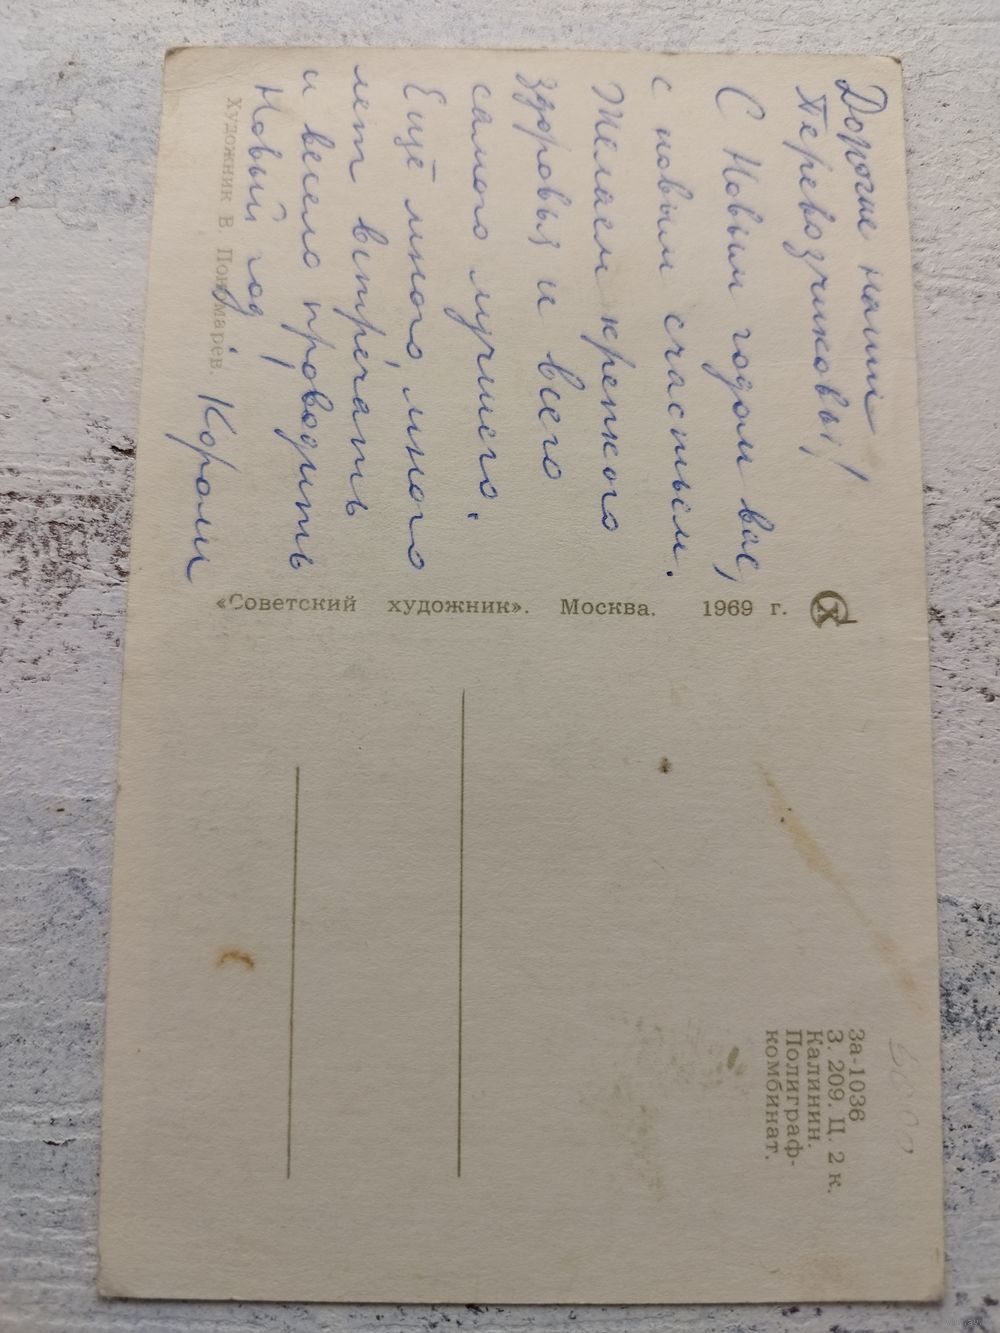 Дорогие наши
Перевозчиковы!
С Новым годом вас,
с новым счастьем.
Желаем крепкого
здоровья и всего
самого лучшего.
Ещё много, много
лет встречать
и весело проводить
Новый год
Короли
Художник В. Пономарев.
«Советский художник». Москва. 1969 г.
За-1036
З. 209. Ц. 2 к.
Калинин.
Полиграф-
комбинат.